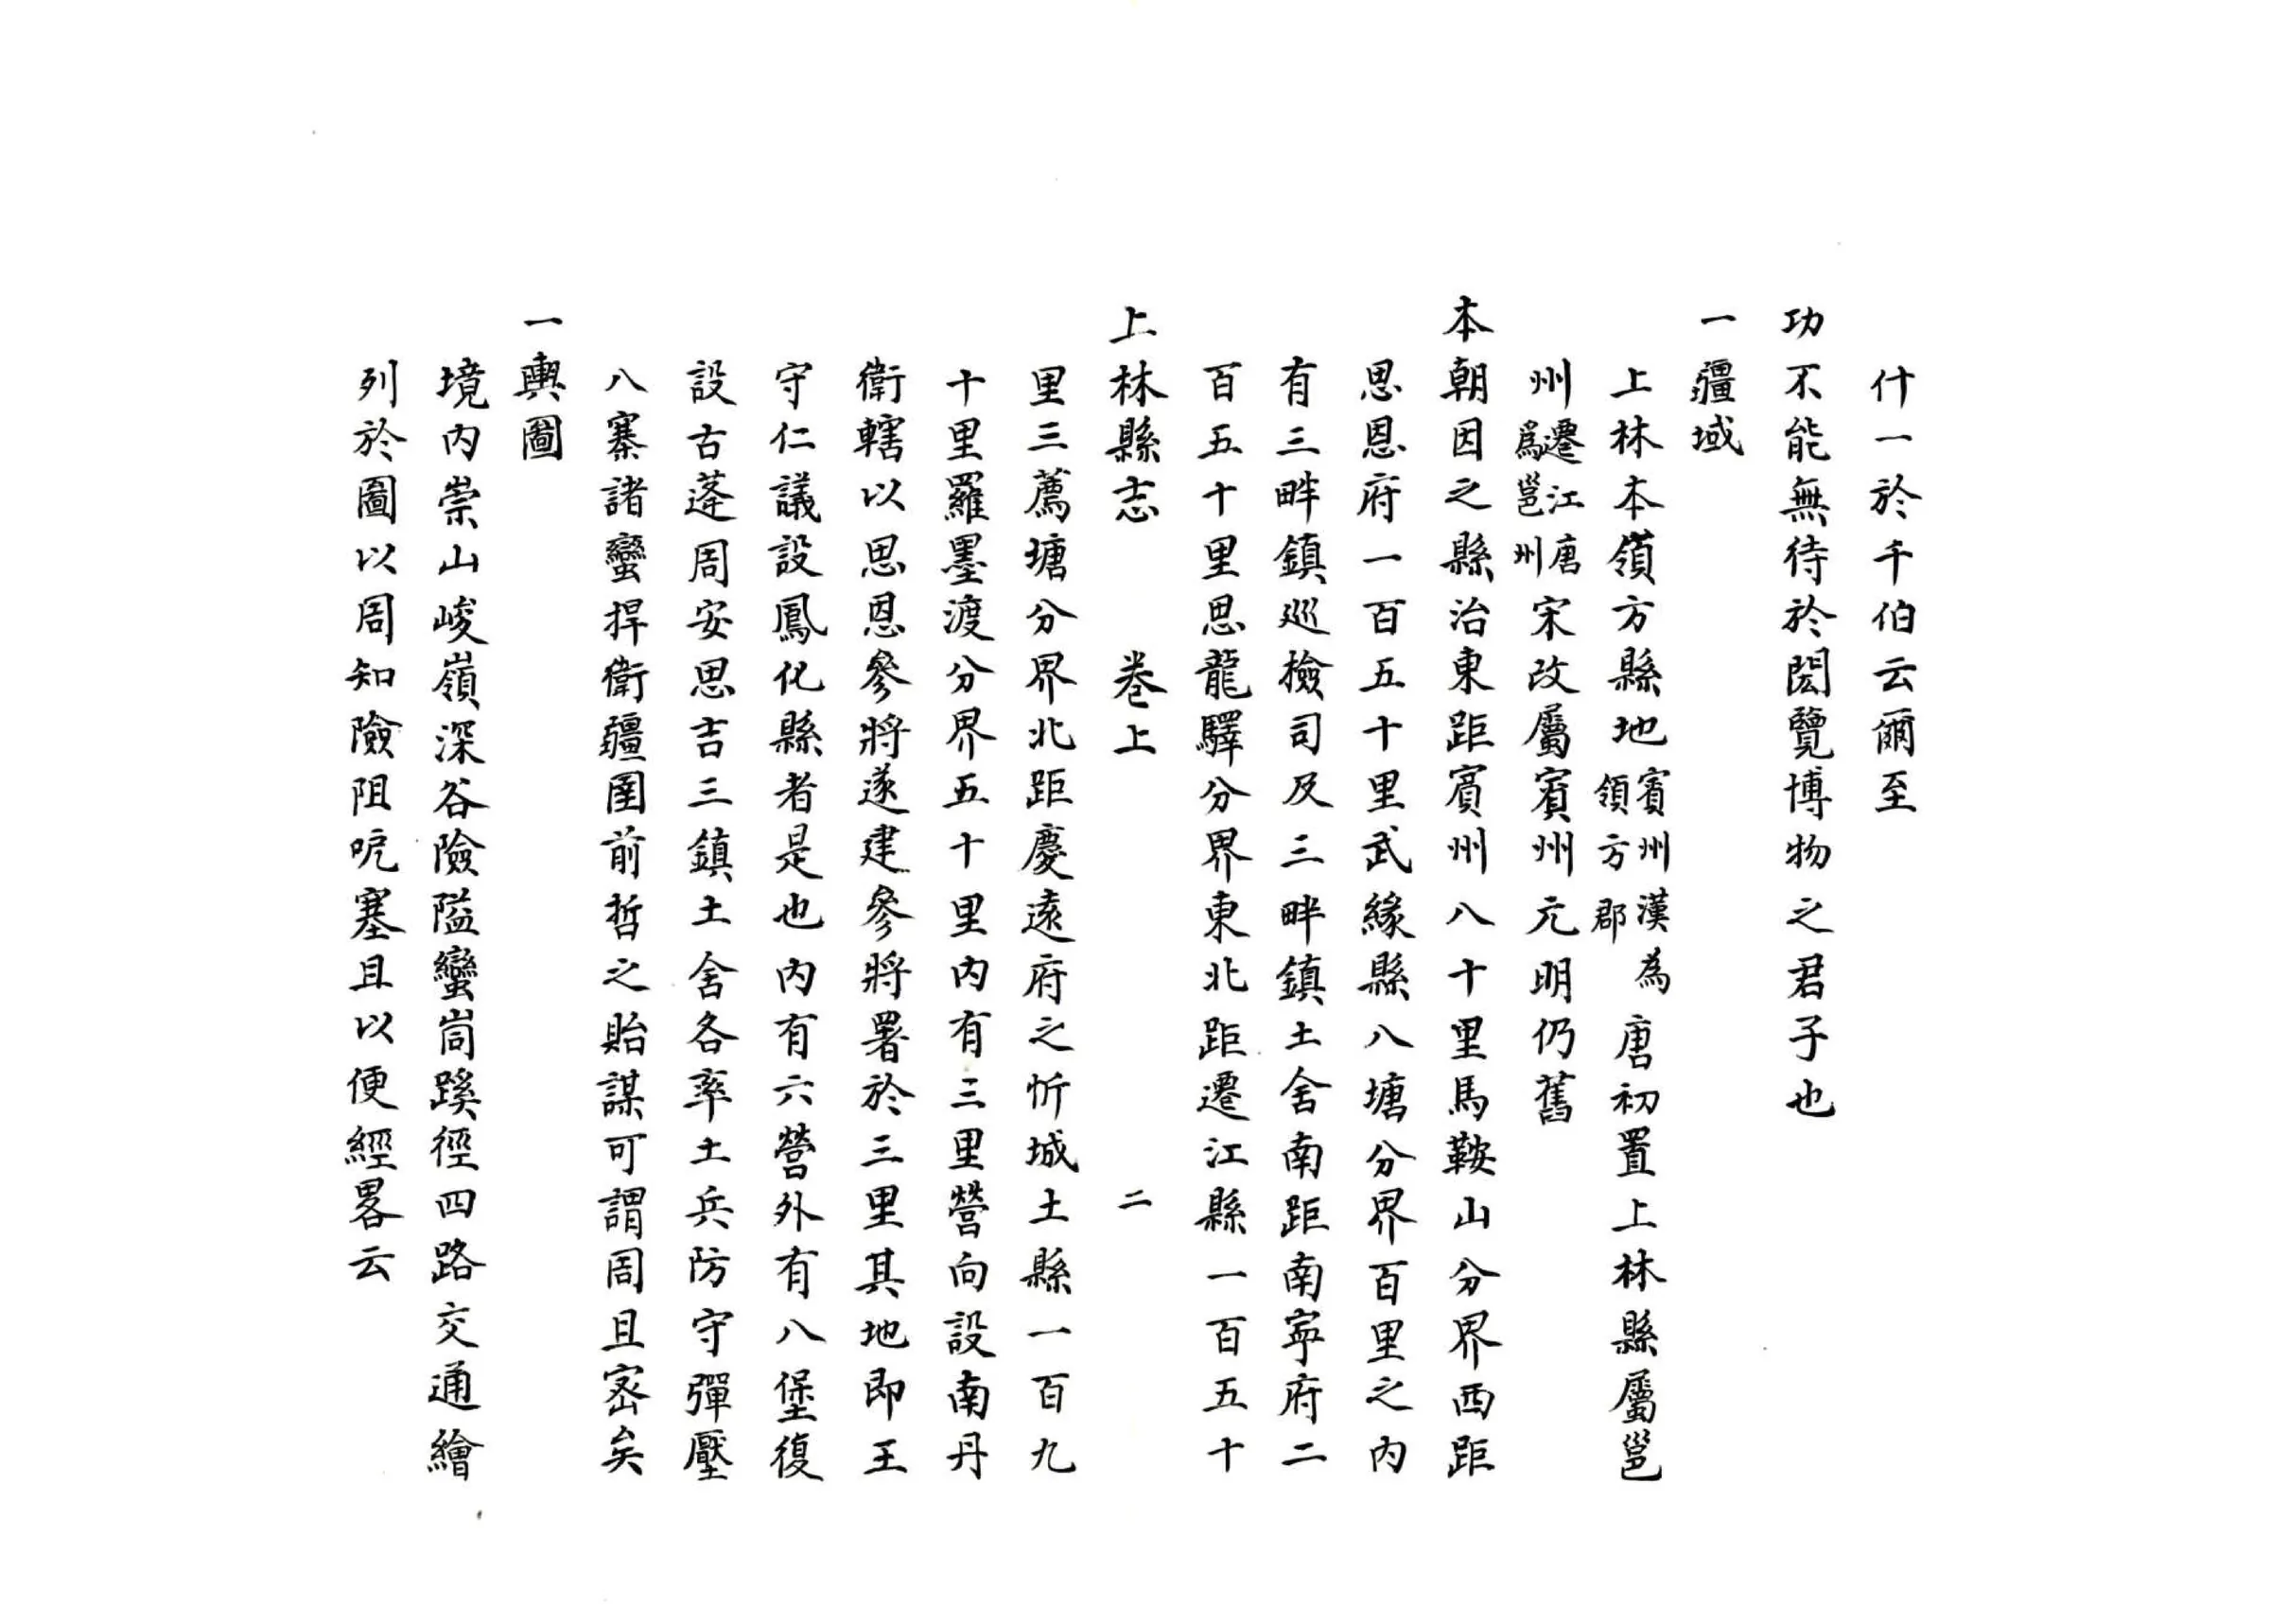 什一於千伯云爾至
功不能無待於閎覽博物之君子也
一疆域
上林本嶺方縣地賓州漢為領方郡唐初置上林縣屬邕
州遷江唐爲邕州宋改屬賓州元明仍舊
本朝因之縣治東距賓州八十里馬鞍山分界西距
思恩府一百五十里武緣縣八塘分界百里之內
有三畔鎮巡檢司及三畔鎮土舍南距南寧府二
百五十里思龍驛分界東北距遷江縣一百五十
上林縣志 卷上 二
里三薦塘分界北距慶遠府之忻城土縣一百九
十里羅墨渡分界五十里內有三里營向設南丹
衛轄以思恩參將遂建參將署於三里其地即王
守仁議設鳳化縣者是也內有六營外有八堡復
設古蓬周安思吉三鎮土舍各率土兵防守彈壓
八寨諸蠻捍衛疆圉前哲之貽謀可謂周且密矣
一輿圖
境內崇山峻嶺深谷險隘蠻峝蹊徑四路交通繪
列於圖以周知險阻呃塞且以便經畧云